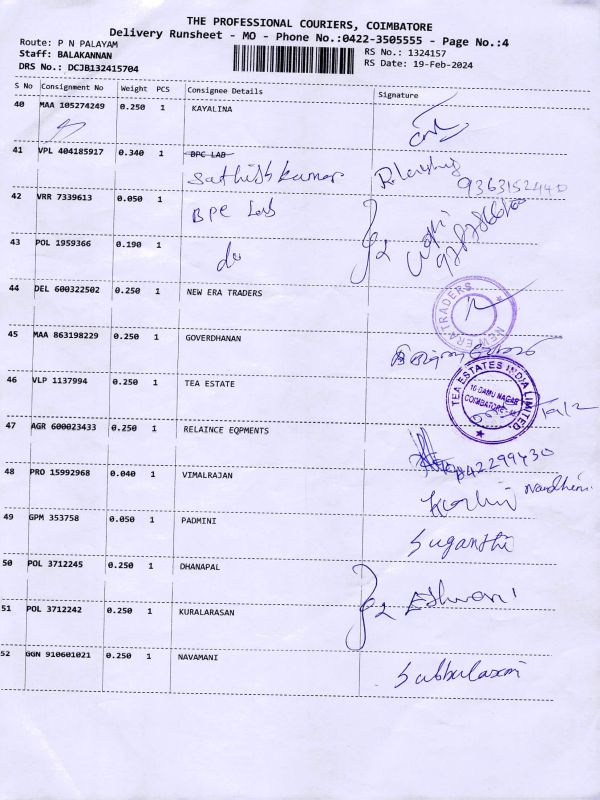 THE PROFESSIONAL COURIERS, COIMBATORE
Delivery Runsheet - MO - Phone No.:0422-3505555 - Page No.:4
Route: P N PALAYAM
Staff: BALAKANNAN
DRS No.: DCJB132415704
RS No.: 1324157
RS Date: 19-Feb-2024
S No Consignment No Weight PCS Consignee Details Signature
40 MAA 105274249 0.250 1 KAYALINA
41 VPL 404185917 0.340 1 BPC LAB
Sathishkumar 9363152440
42 VRR 7339613 0.050 1 BPC Lab
43 POL 1959366 0.190 1 do
44 DEL 600322502 0.250 1 NEW ERA TRADERS
NEW ERA TRADERS
45 MAA 863198229 0.250 1 GOVERDHANAN
46 VLP 1137994 0.250 1 TEA ESTATE
TEA ESTATES INDIA LIMITED
COIMBATORE
47 AGR 600023433 0.250 1 RELAINCE EQPMENTS
48 PRO 15992968 0.040 1 VIMALRAJAN
49 GPM 353758 0.050 1 PADMINI Suganthi
50 POL 3712245 0.250 1 DHANAPAL
51 POL 3712242 0.250 1 KURALARASAN
52 GGN 910601021 0.250 1 NAVAMANI